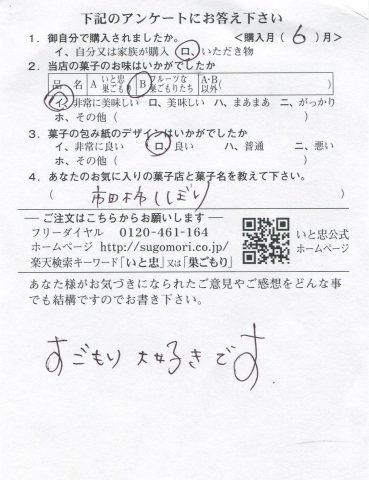 下記のアンケートにお答え下さい
1．御自分で購入されましたか。 ＜購入月（ 6 ）月＞
イ、自分又は家族が購入 ロ、いただき物
2．当店の菓子のお味はいかがでしたか
品 名 A いと忠巣ごもり B フルーツな巣ごもりたち A･B以外（ ）
イ、非常に美味しい ロ、美味しい ハ、まあまあ ニ、がっかり
ホ、その他（ ）
3．菓子の包み紙のデザインはいかがでしたか
イ、非常に良い ロ、良い ハ、普通 ニ、悪い
ホ、その他（ ）
4．あなたのお気に入りの菓子店と菓子名を教えて下さい。
（ 市田柿しぼり ）
― ご注文はこちらからお願いします ―
フリーダイヤル 0120-461-164
ホームページ http://sugomori.co.jp/
楽天検索キーワード「いと忠」又は「巣ごもり」
いと忠公式
ホームページ
あなた様がお気づきになられたご意見やご感想をどんな事
でも結構ですのでお書き下さい。
すごもり 大好きです.